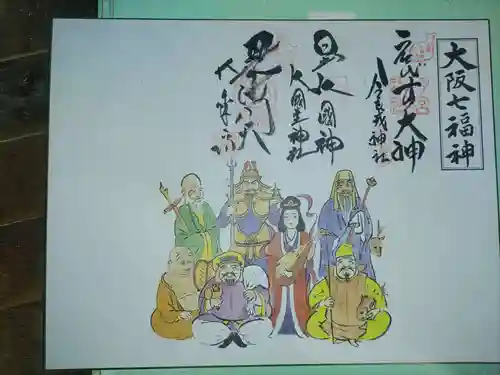 大阪七福神
ゑびす大神
今宮戎神社
大国神
大国主神社
毘沙門天
大乗坊